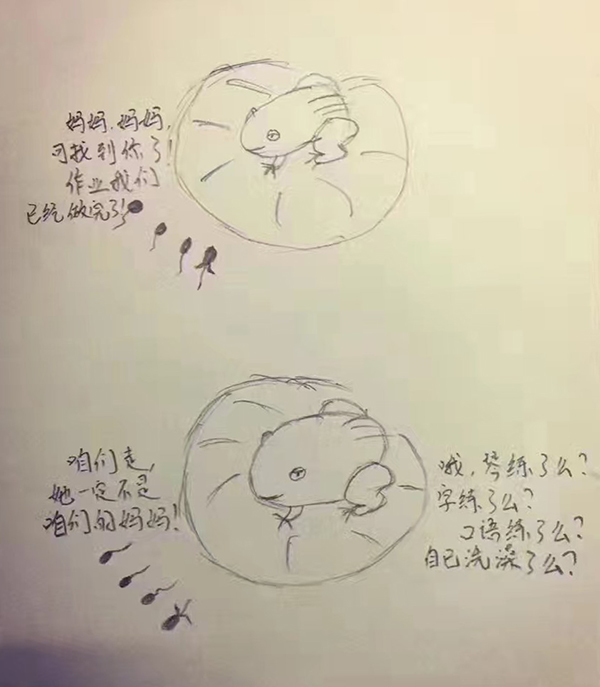 妈妈,妈妈,
可找到你了!
作业我们
已经做完了!
咱们走,
她一定不是
咱们的妈妈!
哦,琴练了么?
字练了么?
口语练了么?
自己洗澡了么?